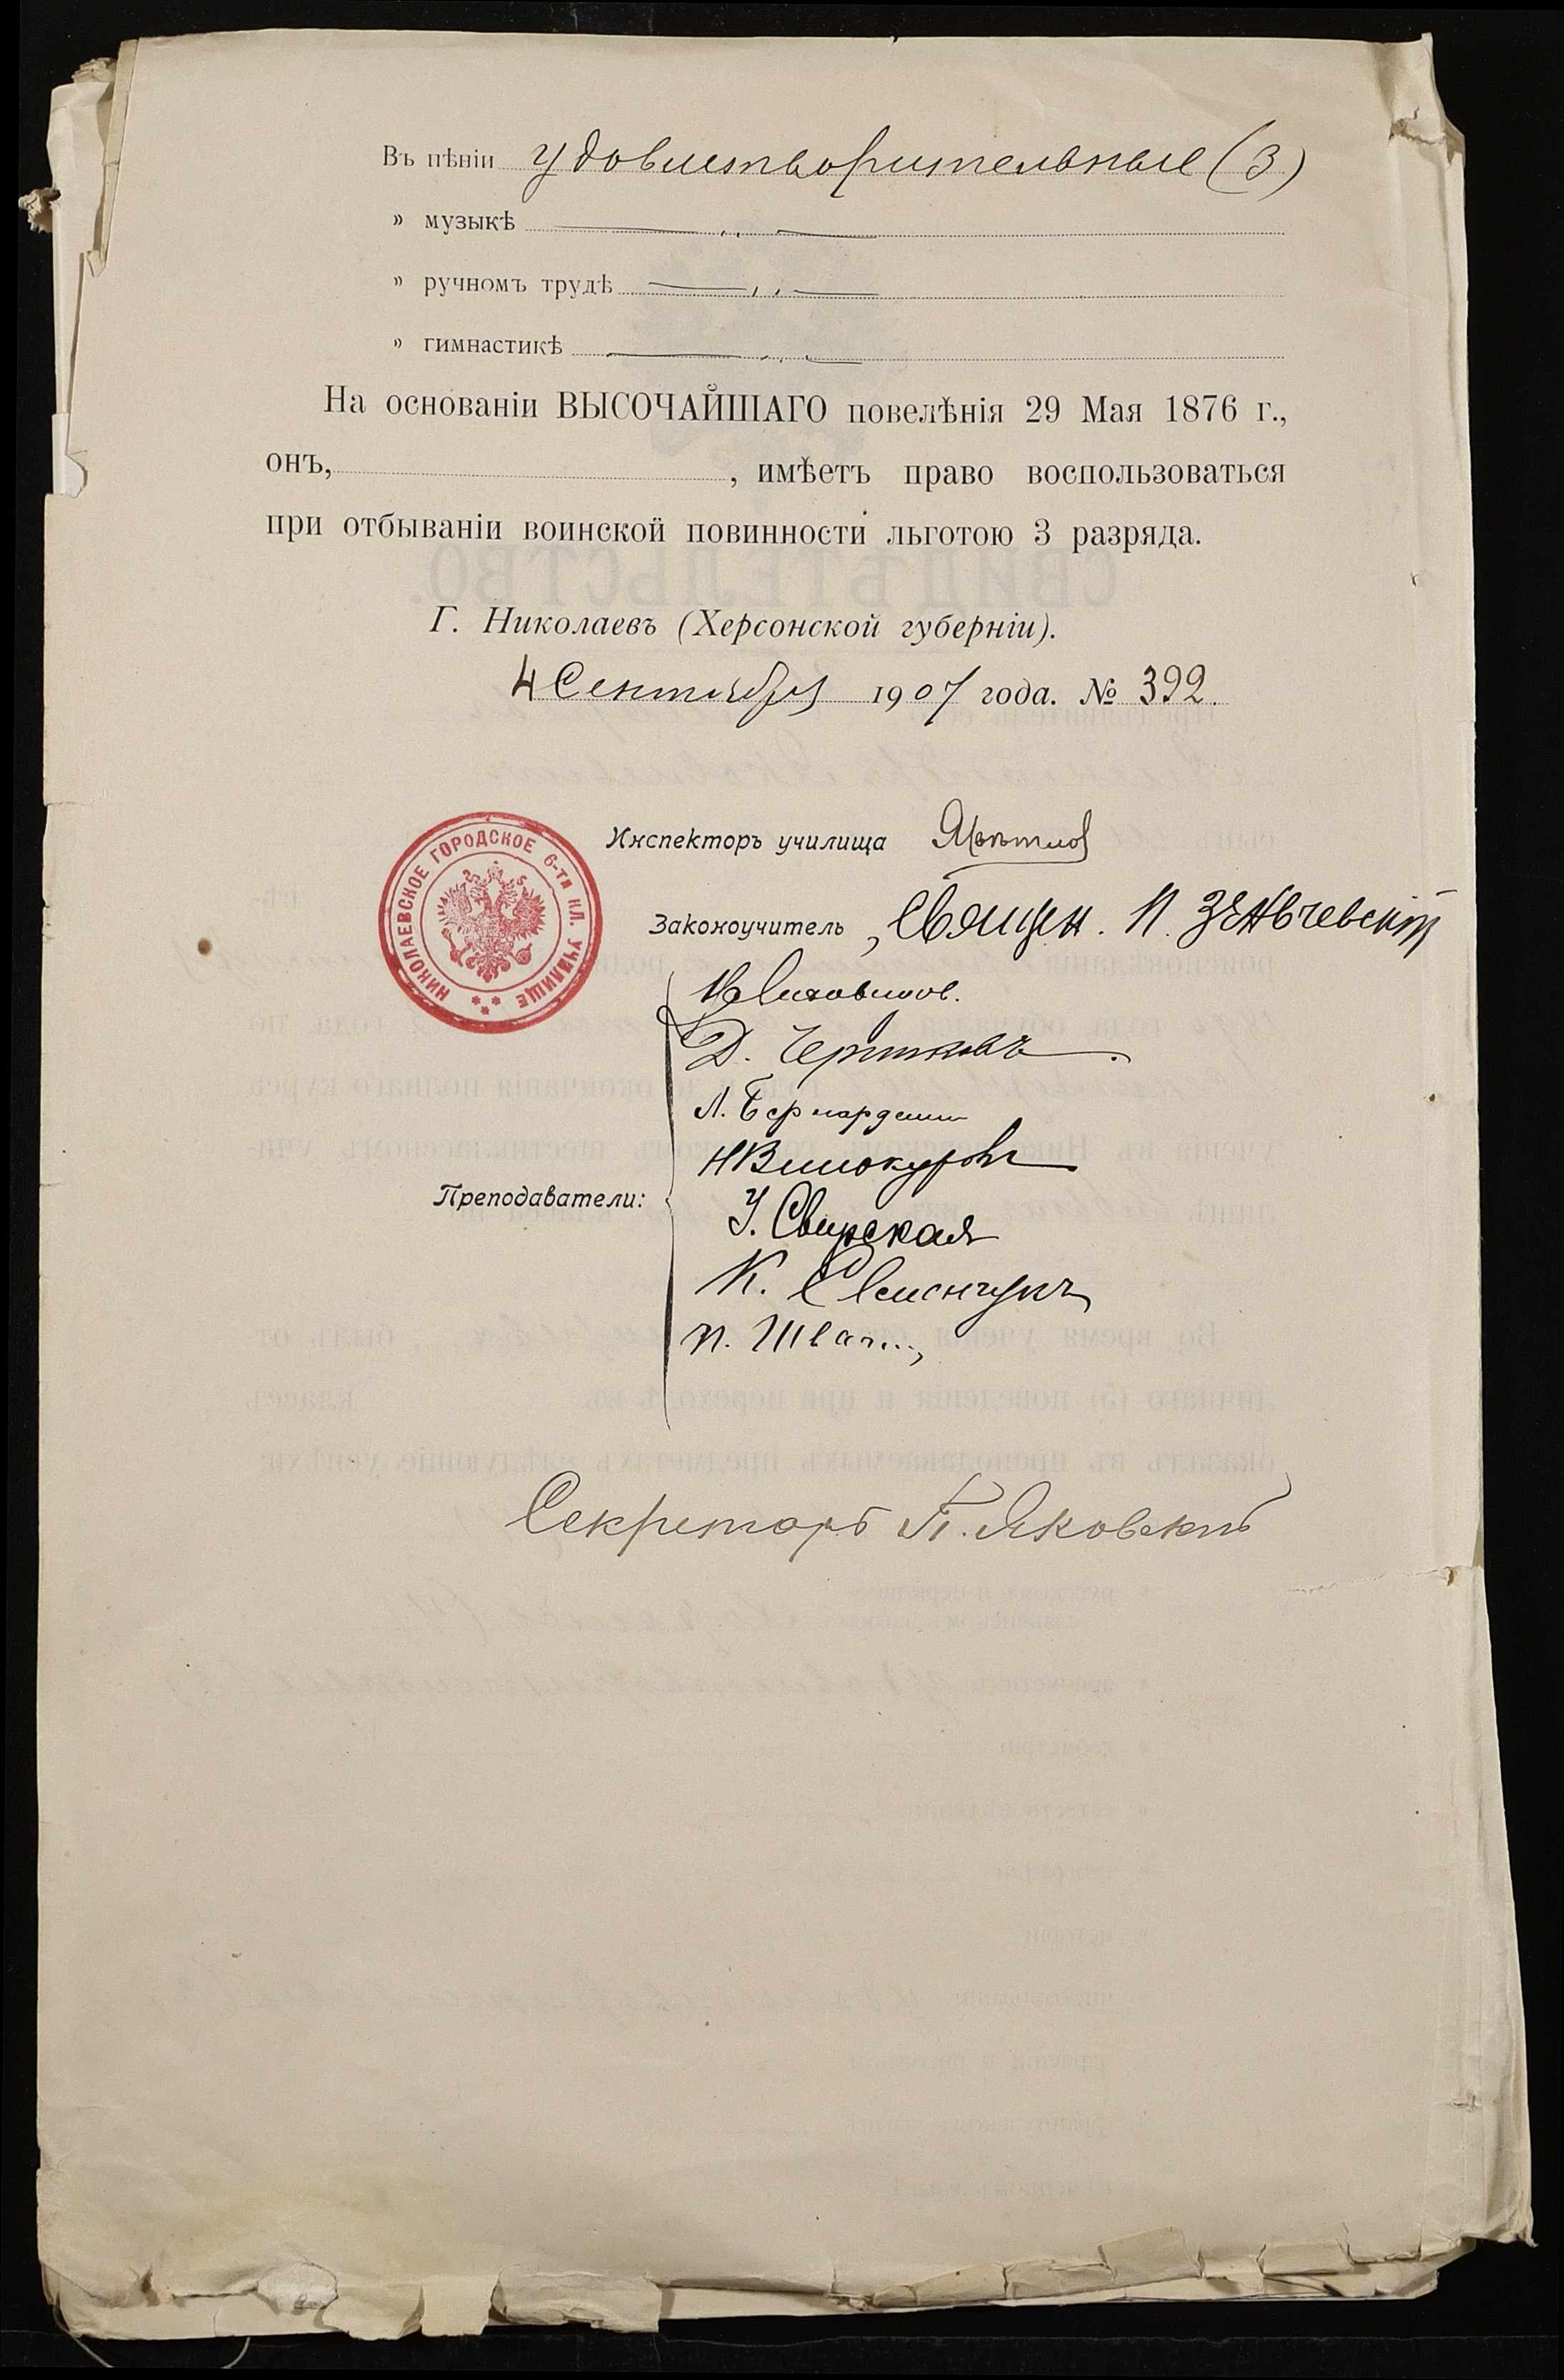 Въ пѣніи удовлетворительные (3)
" музыкѣ
" ручномъ трудѣ
" гимнастикѣ
На основаніи ВЫСОЧАЙШАГО повелѣнія 29 Мая 1876 г.,
онъ, , имѣетъ право воспользоваться
при отбываніи воинской повинности льготою 3 разряда.
СВИДѢТЕЛЬСТВО.
Г. Николаевъ (Херсонской губерніи).
4 Сентября 1907 года. № 392.
НИКОЛАЕВСКОЕ ГОРОДСКОЕ 6-ти КЛ. УЧИЛИЩЕ
Инспекторъ училища
Законоучитель, Священ. П. Зеньчевскій
Д. Чертковъ
Л. Бернардели
Н Винокуровъ
Преподаватели:
У. Свирская
К.
П.
Секретарь П. Яковскій